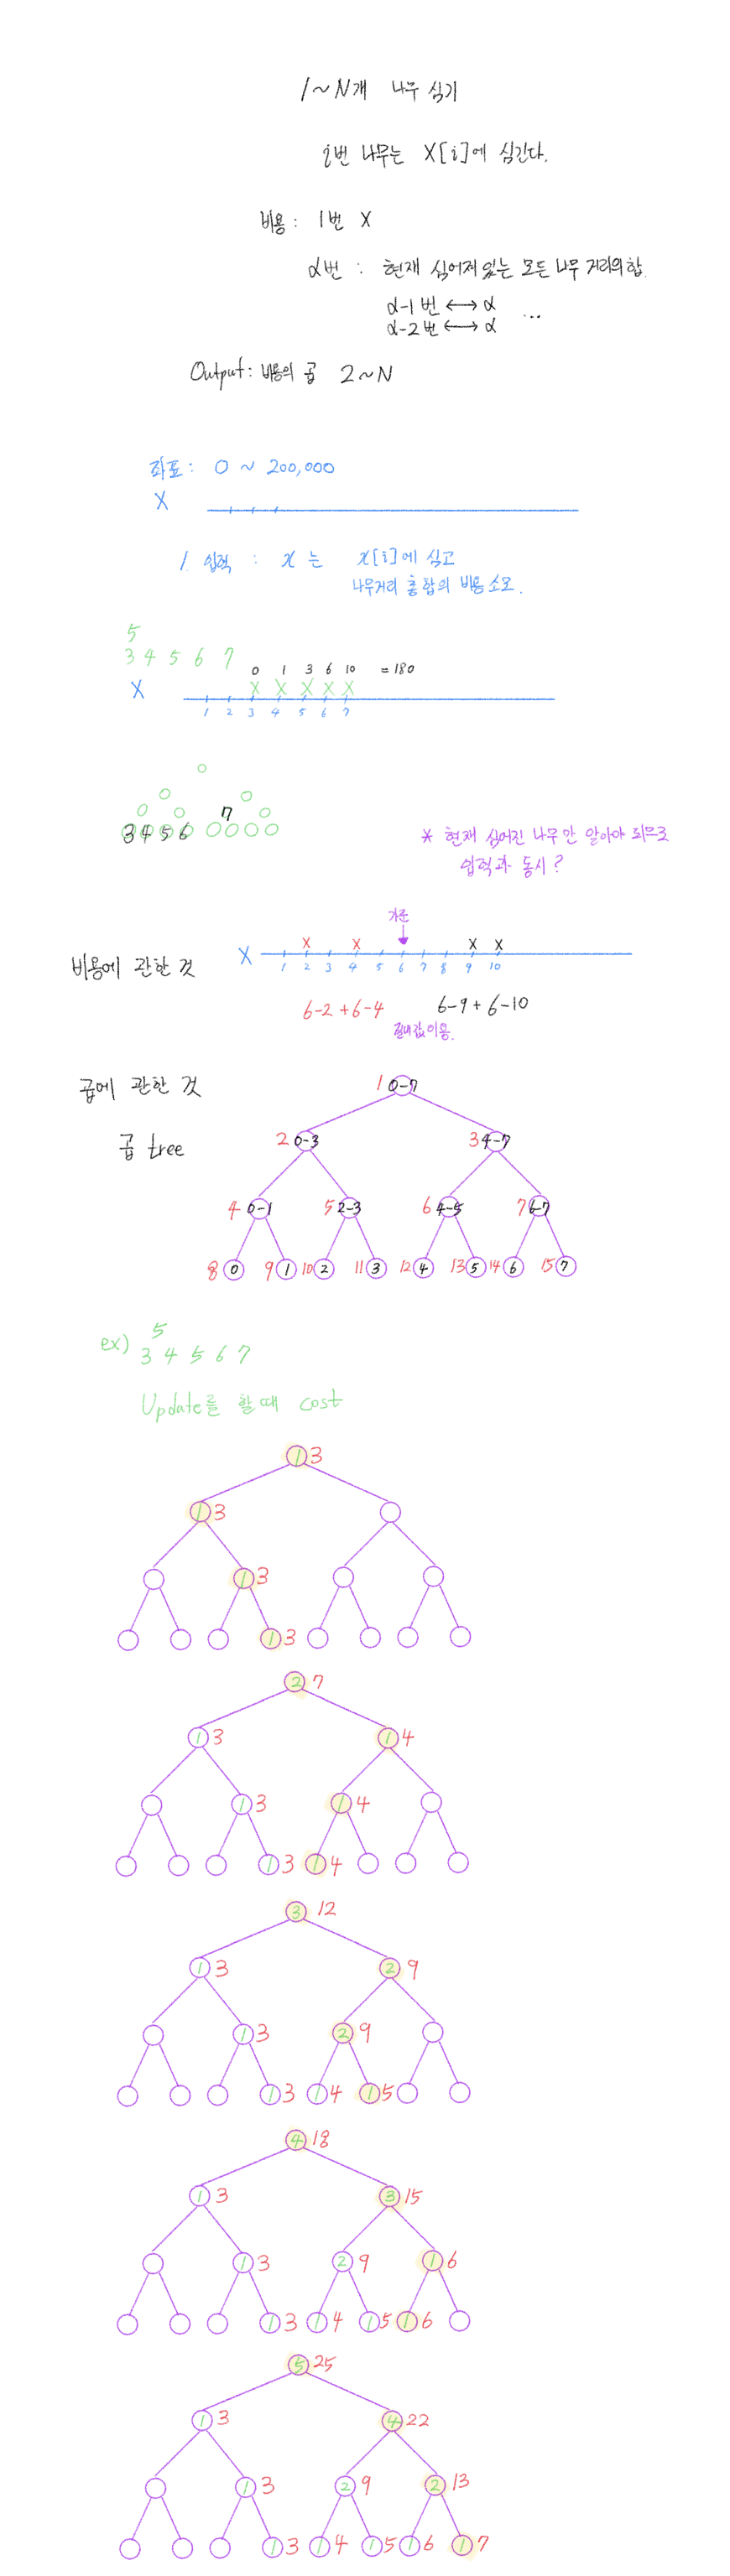 1~N개 나무 심기
i번 나무는 X[i]에 심긴다.
비용: 1번 X
α번 : 현재 심어져있는 모든 나무 거리의 합.
α-1번 ↔ α
α-2번 ↔ α ...
Output: 비용의 곱 2~N
좌표: 0 ~ 200,000
X
1. 입력 : x 는 x[i]에 심고
나무거리 총 합의 비용 소모.
5
3 4 5 6 7
0 1 3 6 10 = 180
X X X X X
X
1 2 3 4 5 6 7
7
3 4 5 6
* 현재 심어진 나무만 알아야 되므로
입력과 동시?
기준
X X X X
비용에 관한 것 X
1 2 3 4 5 6 7 8 9 10
6-2+6-4 6-9+6-10
절대값 이용.
곱에 관한 것
1 0-7
곱 tree
2 0-3 3 4-7
4 0-1 5 2-3 6 4-5 7 6-7
8 0 9 1 10 2 11 3 12 4 13 5 14 6 15 7
5
ex) 3 4 5 6 7
Update를 할 때 cost
1 3
1 3
1 3
1 3
2 7
1 3 1 4
1 3 1 4
1 3 1 4
3 12
1 3 2 9
1 3 2 9
1 3 1 4 1 5
4 18
1 3 3 15
1 3 2 9 1 6
1 3 1 4 1 5 1 6
5 25
1 3 4 22
1 3 2 9 2 13
1 3 1 4 1 5 1 6 1 7